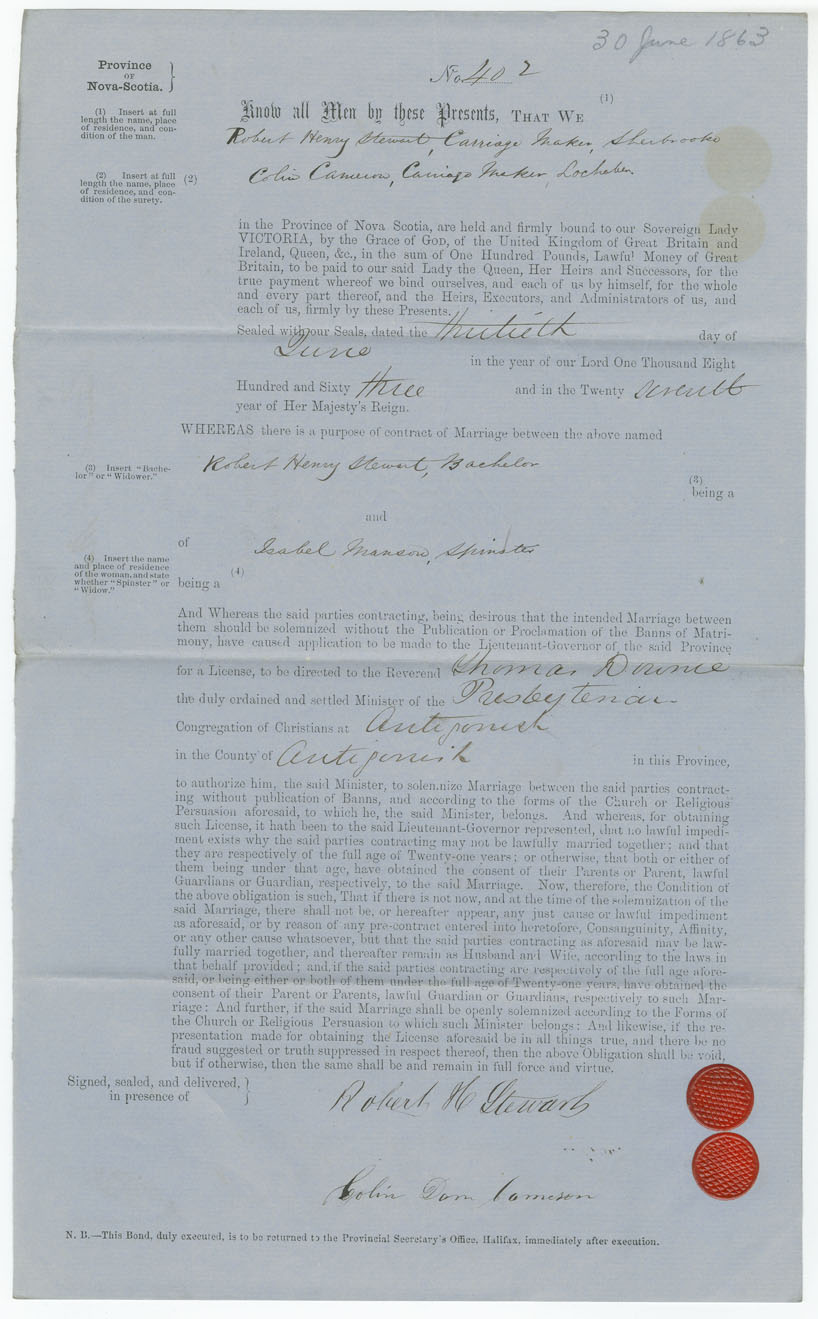 30 June 1863
Province
OF
Nova-Scotia.
No. 402
(1) Insert at full
length the name, place
of residence, and con-
dition of the man.
Know all Men by these Presents, THAT WE (1)
Robert Henry Stewart, Carriage Maker, Sherbrooke
(2) Insert at full
length the name, place
of residence, and con-
dition of the surety.
(2) Colin Cameron, Carriage Maker, Lochaber
in the Province of Nova Scotia, are held and firmly bound to our Sovereign Lady
VICTORIA, by the Grace of GOD, of the United Kingdom of Great Britain and
Ireland, Queen, &c., in the sum of One Hundred Pounds, Lawful Money of Great
Britain, to be paid to our said Lady the Queen, Her Heirs and Successors, for the
true payment whereof we bind ourselves, and each of us by himself, for the whole
and every part thereof, and the Heirs, Executors, and Administrators of us, and
each of us, firmly by these Presents.
Sealed with our Seals, dated the thirtieth day of
June in the year of our Lord One Thousand Eight
Hundred and Sixty three and in the Twenty seventh
year of Her Majesty's Reign.
WHEREAS there is a purpose of contract of Marriage between the above named
(3) Insert "Bache-
lor" or "Widower."
Robert Henry Stewart, Bachelor
(3)
being a
and
of
Isabel Manson, Spinster
(4) Insert the name
and place of residence
of the woman, and state
whether "Spinster" or
"Widow."
(4)
being a
And Whereas the said parties contracting, being desirous that the intended Marriage between
them should be solemnized without the Publication or Proclamation of the Banns of Matri-
mony, have caused application to be made to the Lieutenant-Governor of the said Province
for a License, to be directed to the Reverend Thomas Downie
the duly ordained and settled Minister of the Presbyterian
Congregation of Christians at Antigonish
in the County of Antigonish in this Province,
to authorize him, the said Minister, to solemnize Marriage between the said parties contract-
ing without publication of Banns, and according to the forms of the Church or Religious
Persuasion aforesaid, to which he, the said Minister, belongs. And whereas, for obtaining
such License, it hath been to the said Lieutenant-Governor represented, that no lawful impedi-
ment exists why the said parties contracting may not be lawfully married together; and that
they are respectively of the full age of Twenty-one years; or otherwise, that both or either of
them being under that age, have obtained the consent of their Parents or Parent, lawful
Guardians or Guardian, respectively, to the said Marriage. Now, therefore, the Condition of
the above obligation is such, That if there is not now, and at the time of the solemnization of the
said Marriage, there shall not be, or hereafter appear, any just cause or lawful impediment
as aforesaid, or by reason of any pre-contract entered into heretofore, Consanguinity, Affinity,
or any other cause whatsoever, but that the said parties contracting as aforesaid may be law-
fully married together, and thereafter remain as Husband and Wife, according to the laws in
that behalf provided; and if the said parties contracting are respectively of the full age afore-
said, or being either or both of them under the full age of Twenty-one years, have obtained the
consent of their Parent or Parents, lawful Guardian or Guardians, respectively to such Mar-
riage: And further, if the said Marriage shall be openly solemnized according to the Forms of
the Church or Religious Persuasion to which such Minister belongs: And likewise, if the re-
presentation made for obtaining the License aforesaid be in all things true, and there be no
fraud suggested or truth suppressed in respect thereof, then the above Obligation shall be void,
but if otherwise, then the same shall be and remain in full force and virtue.
Signed, sealed, and delivered,
in presence of
Robert H Stewart
Colin Cameron
N. B.—This Bond, duly executed, is to be returned to the Provincial Secretary's Office, Halifax, immediately after execution.